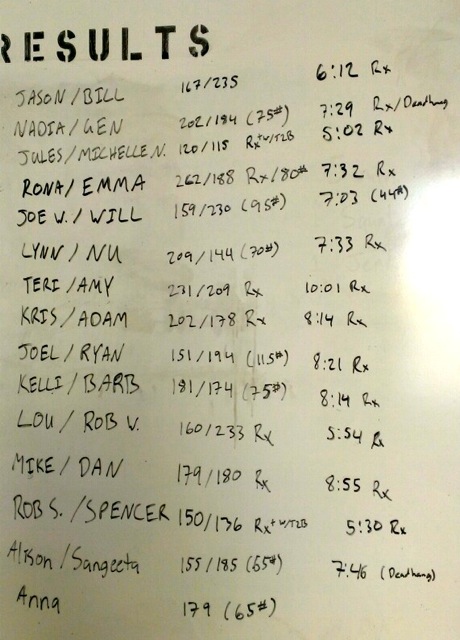 RESULTS
JASON/BILL 167/235 6:12 Rx
NADIA/GEN 202/184 (75#) 7:29 Rx/Deadhang
JULES/MICHELLE N. 120/115 Rx+w/T2B 5:02 Rx
RONA/EMMA 262/188 Rx/80# 7:32 Rx
JOE W./WILL 159/230 (95#) 7:03 (44#)
LYNN/NU 209/144 (70#) 7:33 Rx
TERI/AMY 231/209 Rx 10:01 Rx
KRIS/ADAM 202/178 Rx 8:14 Rx
JOEL/RYAN 151/194 (115#) 8:21 Rx
KELLI/BARB 181/174 (75#) 8:14 Rx
LOU/ROB V. 160/233 Rx 5:54 Rx
MIKE/DAN 179/180 Rx 8:55 Rx
ROB S./SPENCER 150/136 Rx+w/T2B 5:30 Rx
Alison/Sangeeta 155/185 (65#) 7:46 (Deadhang)
Anna 179 (65#)